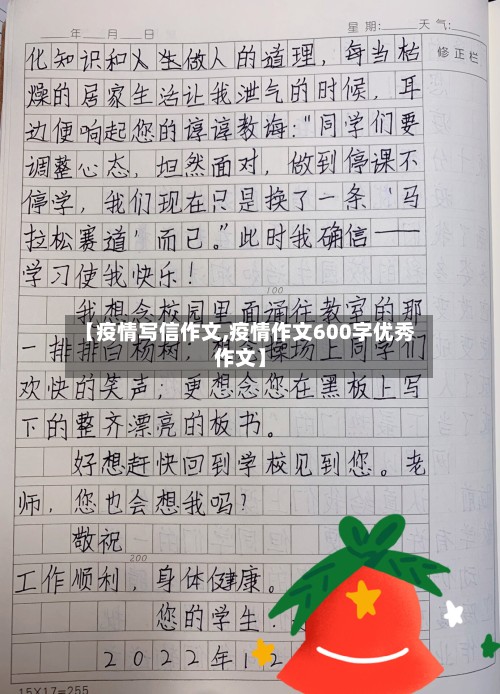 年 月 日 星期: 天气:
修正栏
化知识和人生做人的道理，每当枯
燥的居家生活让我泄气的时候，耳
边便响起您的谆谆教诲："同学们要
调整心态，坦然面对，做到停课不
停学，我们现在只是换了一条'马
拉松赛道'而已。"此时我确信——
学习使我快乐！
100
我想念校园里面通往教室的那
一排排白杨树，操场上同学们
【疫情写信作文,疫情作文600字优秀
作文】
欢快的笑声；更想念您在黑板上写
下的整齐漂亮的板书。
好想赶快回到学校见到您。老
师，您也会想我吗？
敬祝
200
工作顺利，身体健康。
您的学生：
2022年12
15X17=255